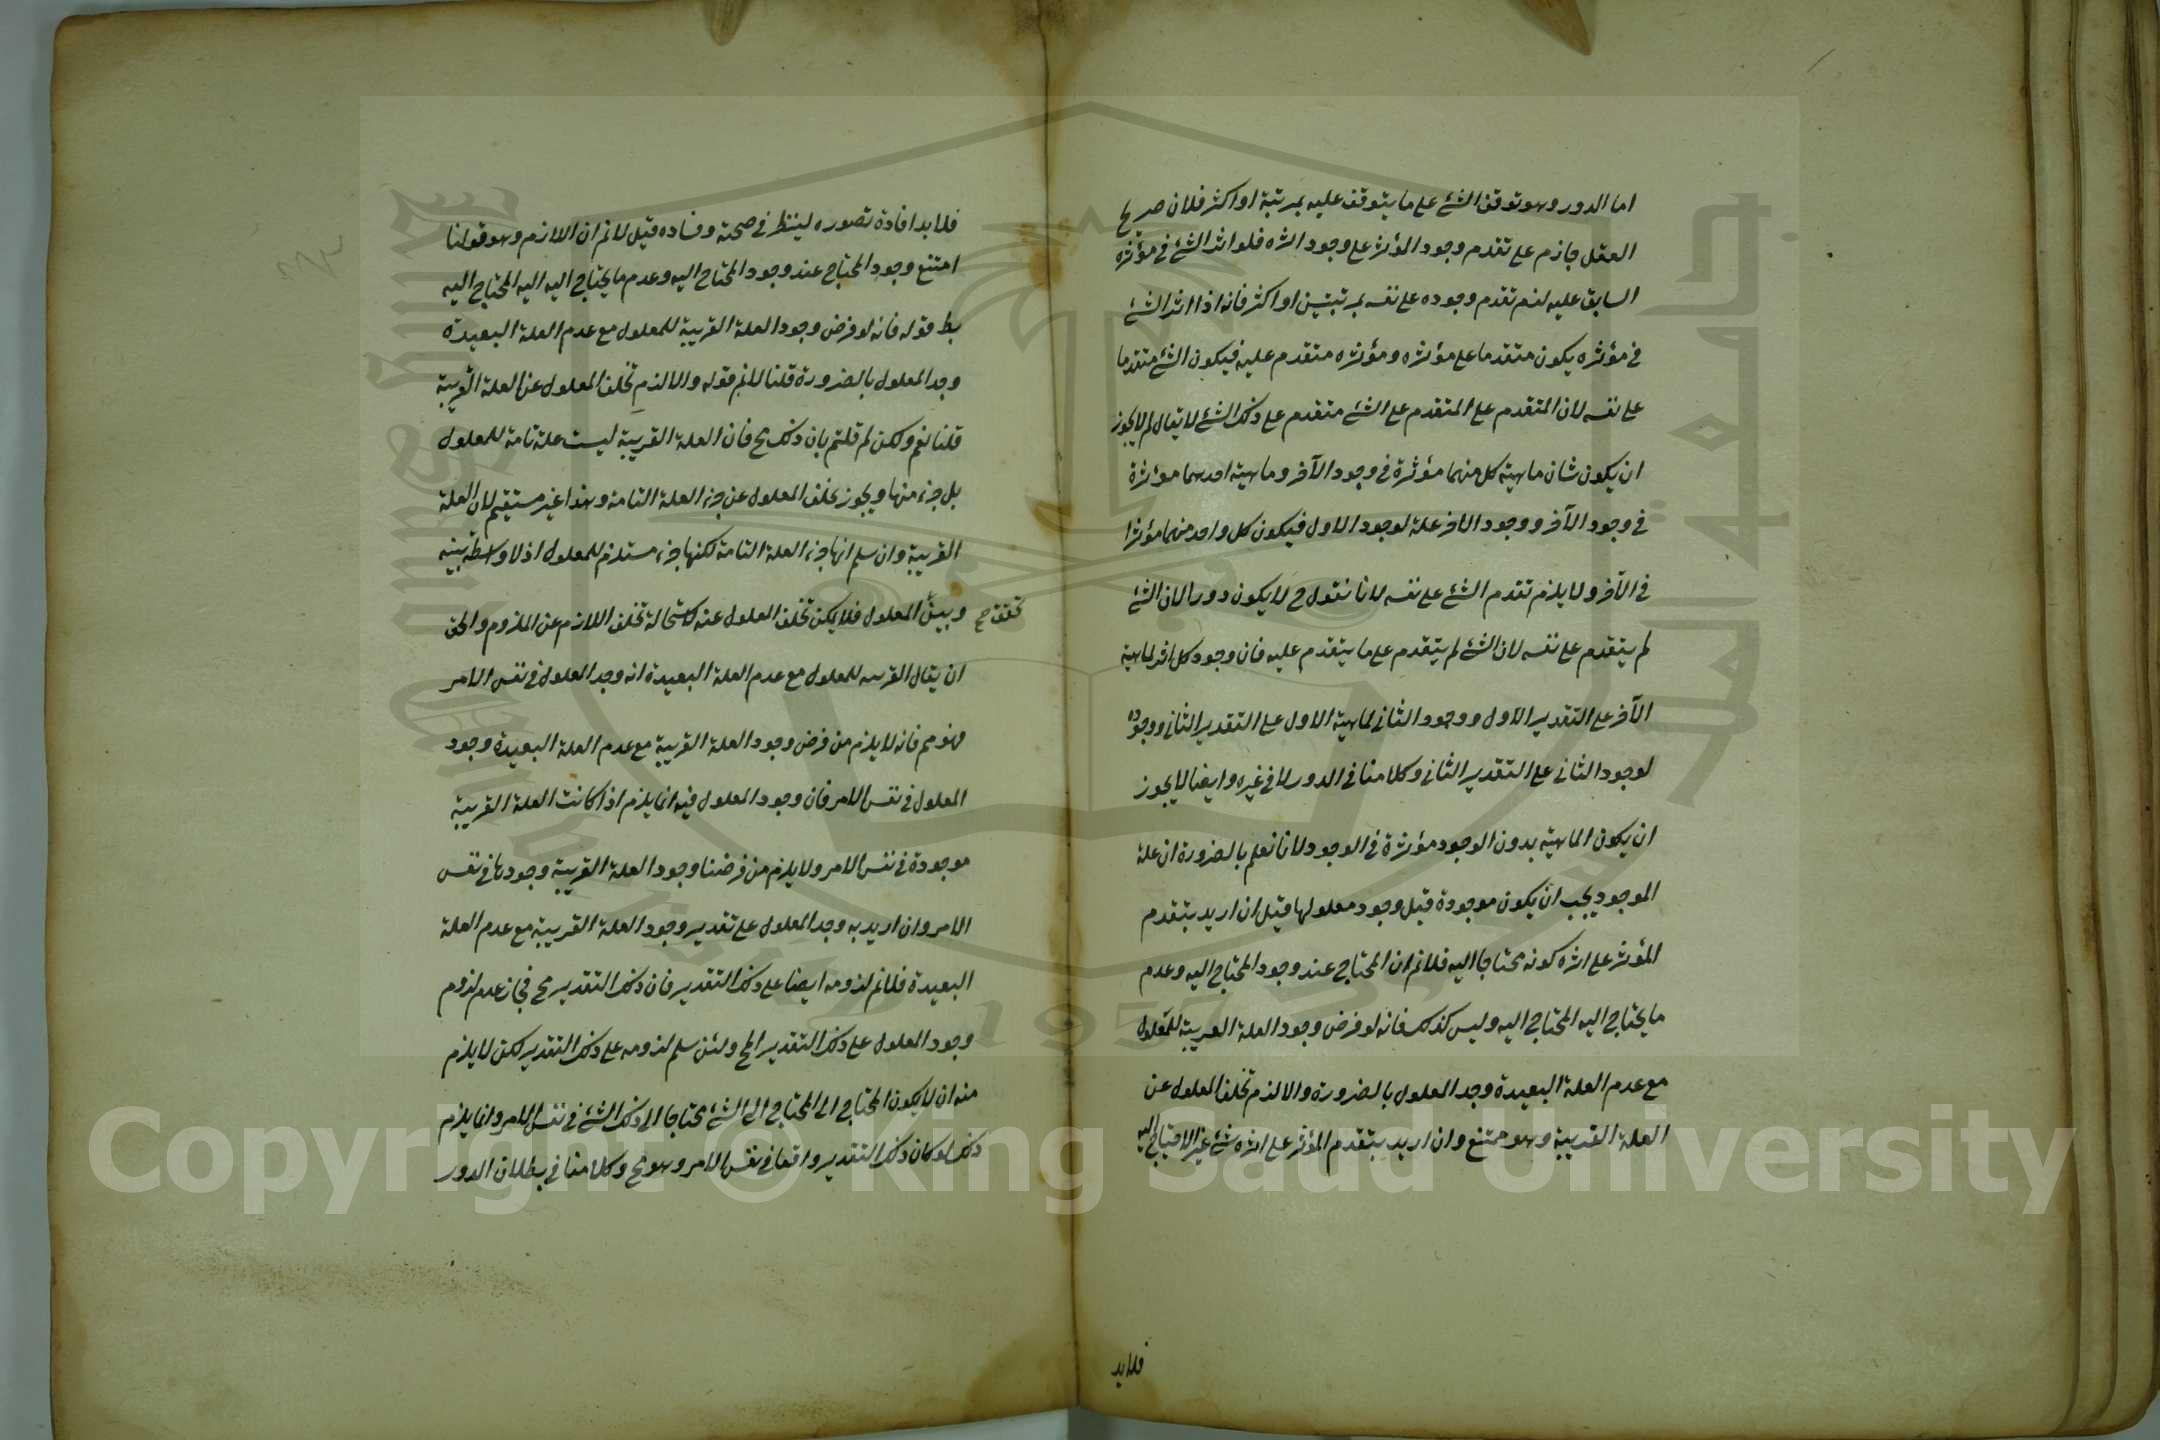 اما الدور وهو توقف الشئ على ما يتوقف عليه بمرتبة او اكثر فلان صريح
العقل جازم على تقدم وجود المؤثر على وجود اثره فلو اثر الشئ في مؤثره
السابق عليه لزم تقدم وجوده على نفسه بمرتبتين او اكثر فانه اذا اثر الشئ
في مؤثره يكون متقدما على مؤثره ومؤثره متقدم عليه فيكون الشئ متقدما
على نفسه لان المتقدم على المتقدم على الشئ متقدم على ذلك الشئ لا يقال لم لا يجوز
ان يكون شان ماهية كل منهما مؤثرة في وجود الآخر وماهية احدهما مؤثرة
في وجود الآخر ووجود الاخر علة لوجود الاول فيكون كل واحد منهما مؤثرا
في الآخر ولا يلزم تقدم الشئ على نفسه لانا نقول ح لا يكون دورا لان الشئ
لم يتقدم على نفسه لان الشئ لم يتقدم على ما يتقدم عليه فان وجود كل اثر لماهية
الآخر على التقدير الاول ووجود الثاني لماهية الاول على التقدير الثاني ووجوده
لوجود الثاني على التقدير الثاني وكلامنا في الدور لا في غيره وايضا لا يجوز
ان يكون الماهية بدون الوجود مؤثرة في الوجود لانا نعلم بالضرورة ان علة
الموجود يجب ان يكون موجودة قبل وجود معلولها قيل ان اريد بتقدم
المؤثر على اثره كونه محتاجا اليه فلانم ان المحتاج عند وجود المحتاج اليه وعدم
ما يحتاج اليه المحتاج اليه وليس كذلك فانه لو فرض وجود العلة القريبة للمعلول
مع عدم العلة البعيدة وجد المعلول بالضرورة والا لزم تخلف المعلول عن
العلة القريبة وهو ممتنع وان اريد بتقدم المؤثر على اثره شئ غير الاحتياج اليه
فلابد
فلابد افادة تصوره لينظر في صحته وفساده قيل لانم ان اللازم وهو قولنا
امتنع وجود المحتاج عند وجود المحتاج اليه وعدم ما يحتاج اليه اليه المحتاج اليه
بط قوله فانه لو فرض وجود العلة القريبة للمعلول مع عدم العلة البعيدة
وجد المعلول بالضرورة قلنا لانم قوله والا لزم تخلف المعلول عن العلة القريبة
قلنا نعم ولكن لم قلتم بان ذلك مح فان العلة القريبة ليست علة تامة للمعلول
بل جزء منها ويجوز تخلف المعلول عن جزء العلة التامة وهذا غير مستقيم لان العلة
القريبة وان سلم انها جزء العلة التامة لكنها جزء مستلزم للمعلول اذ لا واسطة بينه
وبين المعلول فلا يمكن تخلف المعلول عنه لاستحالة تخلف اللازم عن الملزوم والحق
ان يقال القريبة للمعلول مع عدم العلة البعيدة انه وجد المعلول في نفس الامر
فهو مم فانه لا يلزم من فرض وجود العلة القريبة مع عدم العلة البعيدة وجود
المعلول في نفس الامر فان وجود المعلول فيه انما يلزم اذا كانت العلة القريبة
موجودة في نفس الامر ولا يلزم من فرضنا وجود العلة القريبة وجودها في نفس
الامر وان اريد به وجد المعلول على تقدير وجود العلة القريبة مع عدم العلة
البعيدة فلانم لزومه ايضا على ذلك التقدير فان ذلك التقدير مح فجاز عدم لزوم
وجود المعلول على ذلك التقدير المح ولئن سلم لزومه على ذلك التقدير لكن لا يلزم
منه ان لا يكون المحتاج الى المحتاج الى الشئ محتاجا الى ذلك الشئ في نفس الامر وانما يلزم
ذلك لو كان ذلك التقدير واقعا في نفس الامر وهو مح وكلامنا في بطلان الدور
Copyright © King Saud University
1957